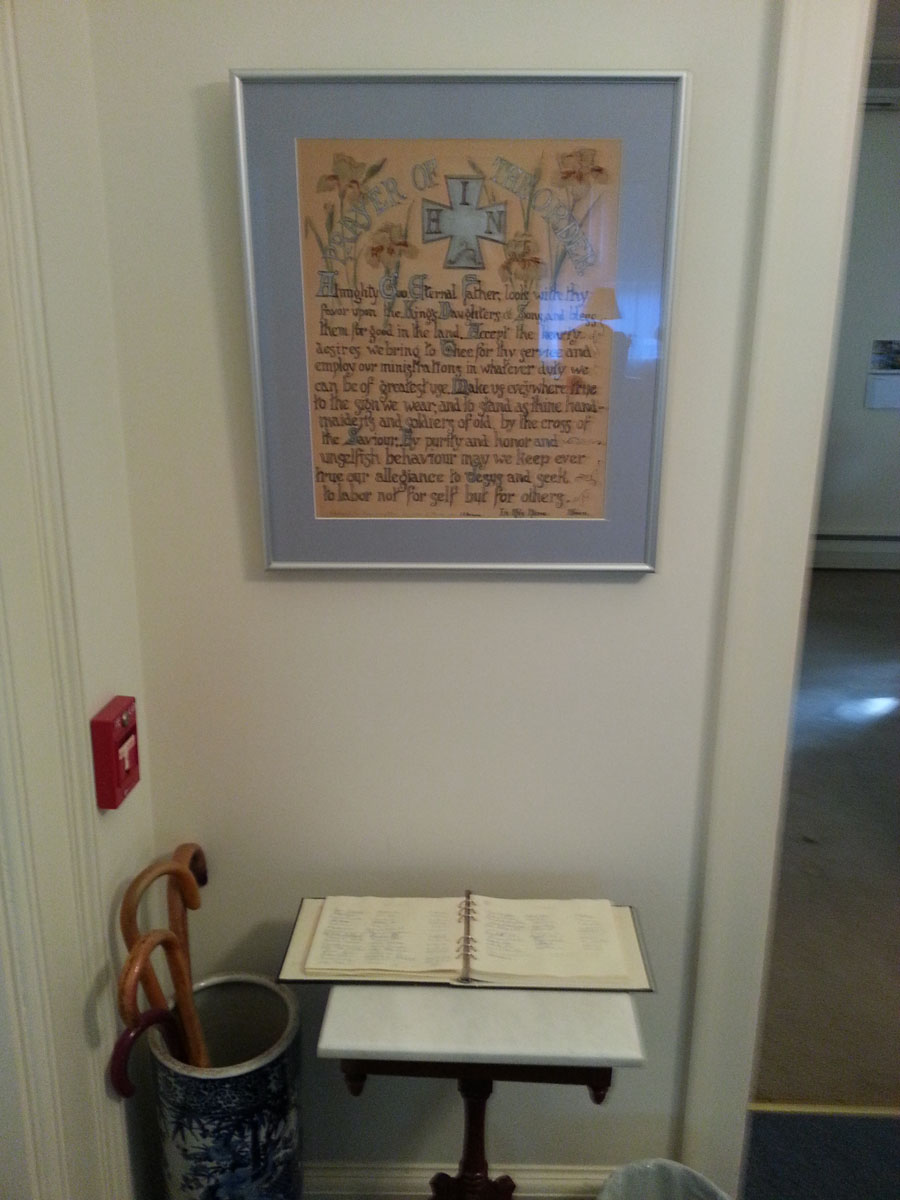 PRAYER OF THE ORDER
I
H N
Almighty God Eternal Father, look with thy
favor upon the Kings Daughters & Sons, and bless
them for good in the land. Accept the hearty
desires we bring to Thee for thy service and
employ our ministrations in whatever duty we
can be of greatest use. Make us everywhere true
to the sign we wear, and to stand as thine hand-
maidens and soldiers of old, by the cross of
the Saviour. By purity and honor and
unselfish behaviour may we keep ever
true our allegiance to Jesus and seek
to labor not for self but for others.
In His Name Amen